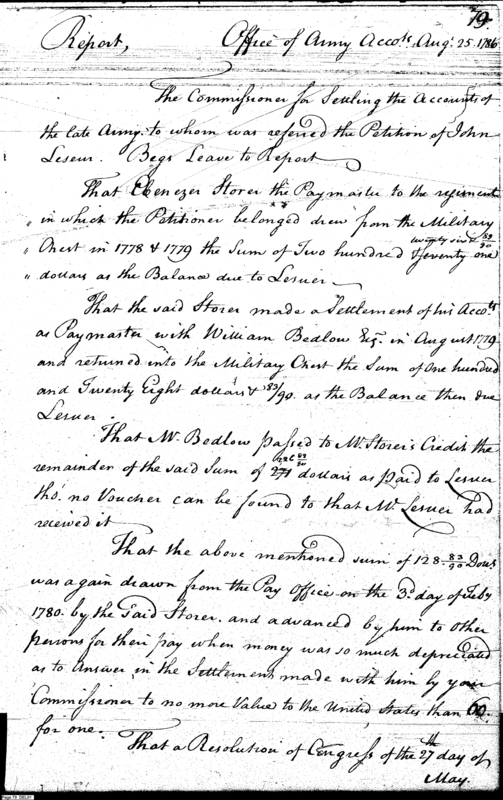 79
Report, Office of Army Accots. Augt. 25. 1786
The Commissioner for Settling the Accounts of
the late Army. to whom was referred the Petition of John
Leseur. Begs Leave to Report
That Ebenezer Storer the Paymaster to the regiment
" in which the Petitioner belonged drew from the Military
" Chest in 1778 & 1779 the Sum of Two hundred & seventy one
twenty six & 83/90
" dollars as the Balance due to Lesuer
That the said Storer made a Settlement of his Accots
as Paymaster with William Bedlow Esqr. in August 1779
and returned into the Military Chest the Sum of One hundred
and Twenty Eight dollars & 83/90. as the Balance then due
Lesuer.
That Mr. Bedlow passed to Mr. Storer's Credit the
remainder of the said Sum of 271 dollars as paid to Lesuer
tho'. no Voucher can be found to that Mr. Lesuer had
received it
That the above mentioned sum of 128. 83/90 Dolls
was again drawn from the Pay Office on the 3d. day of Feby
1780. by the said Storer. and advanced by him to other
persons for their pay when money was so much depreciated
as to Answer, in the Settlement made with him by your
Commissioner to no more Value to the United States than 60.
for one.
That a Resolution of Congress of the 27th day of
May.